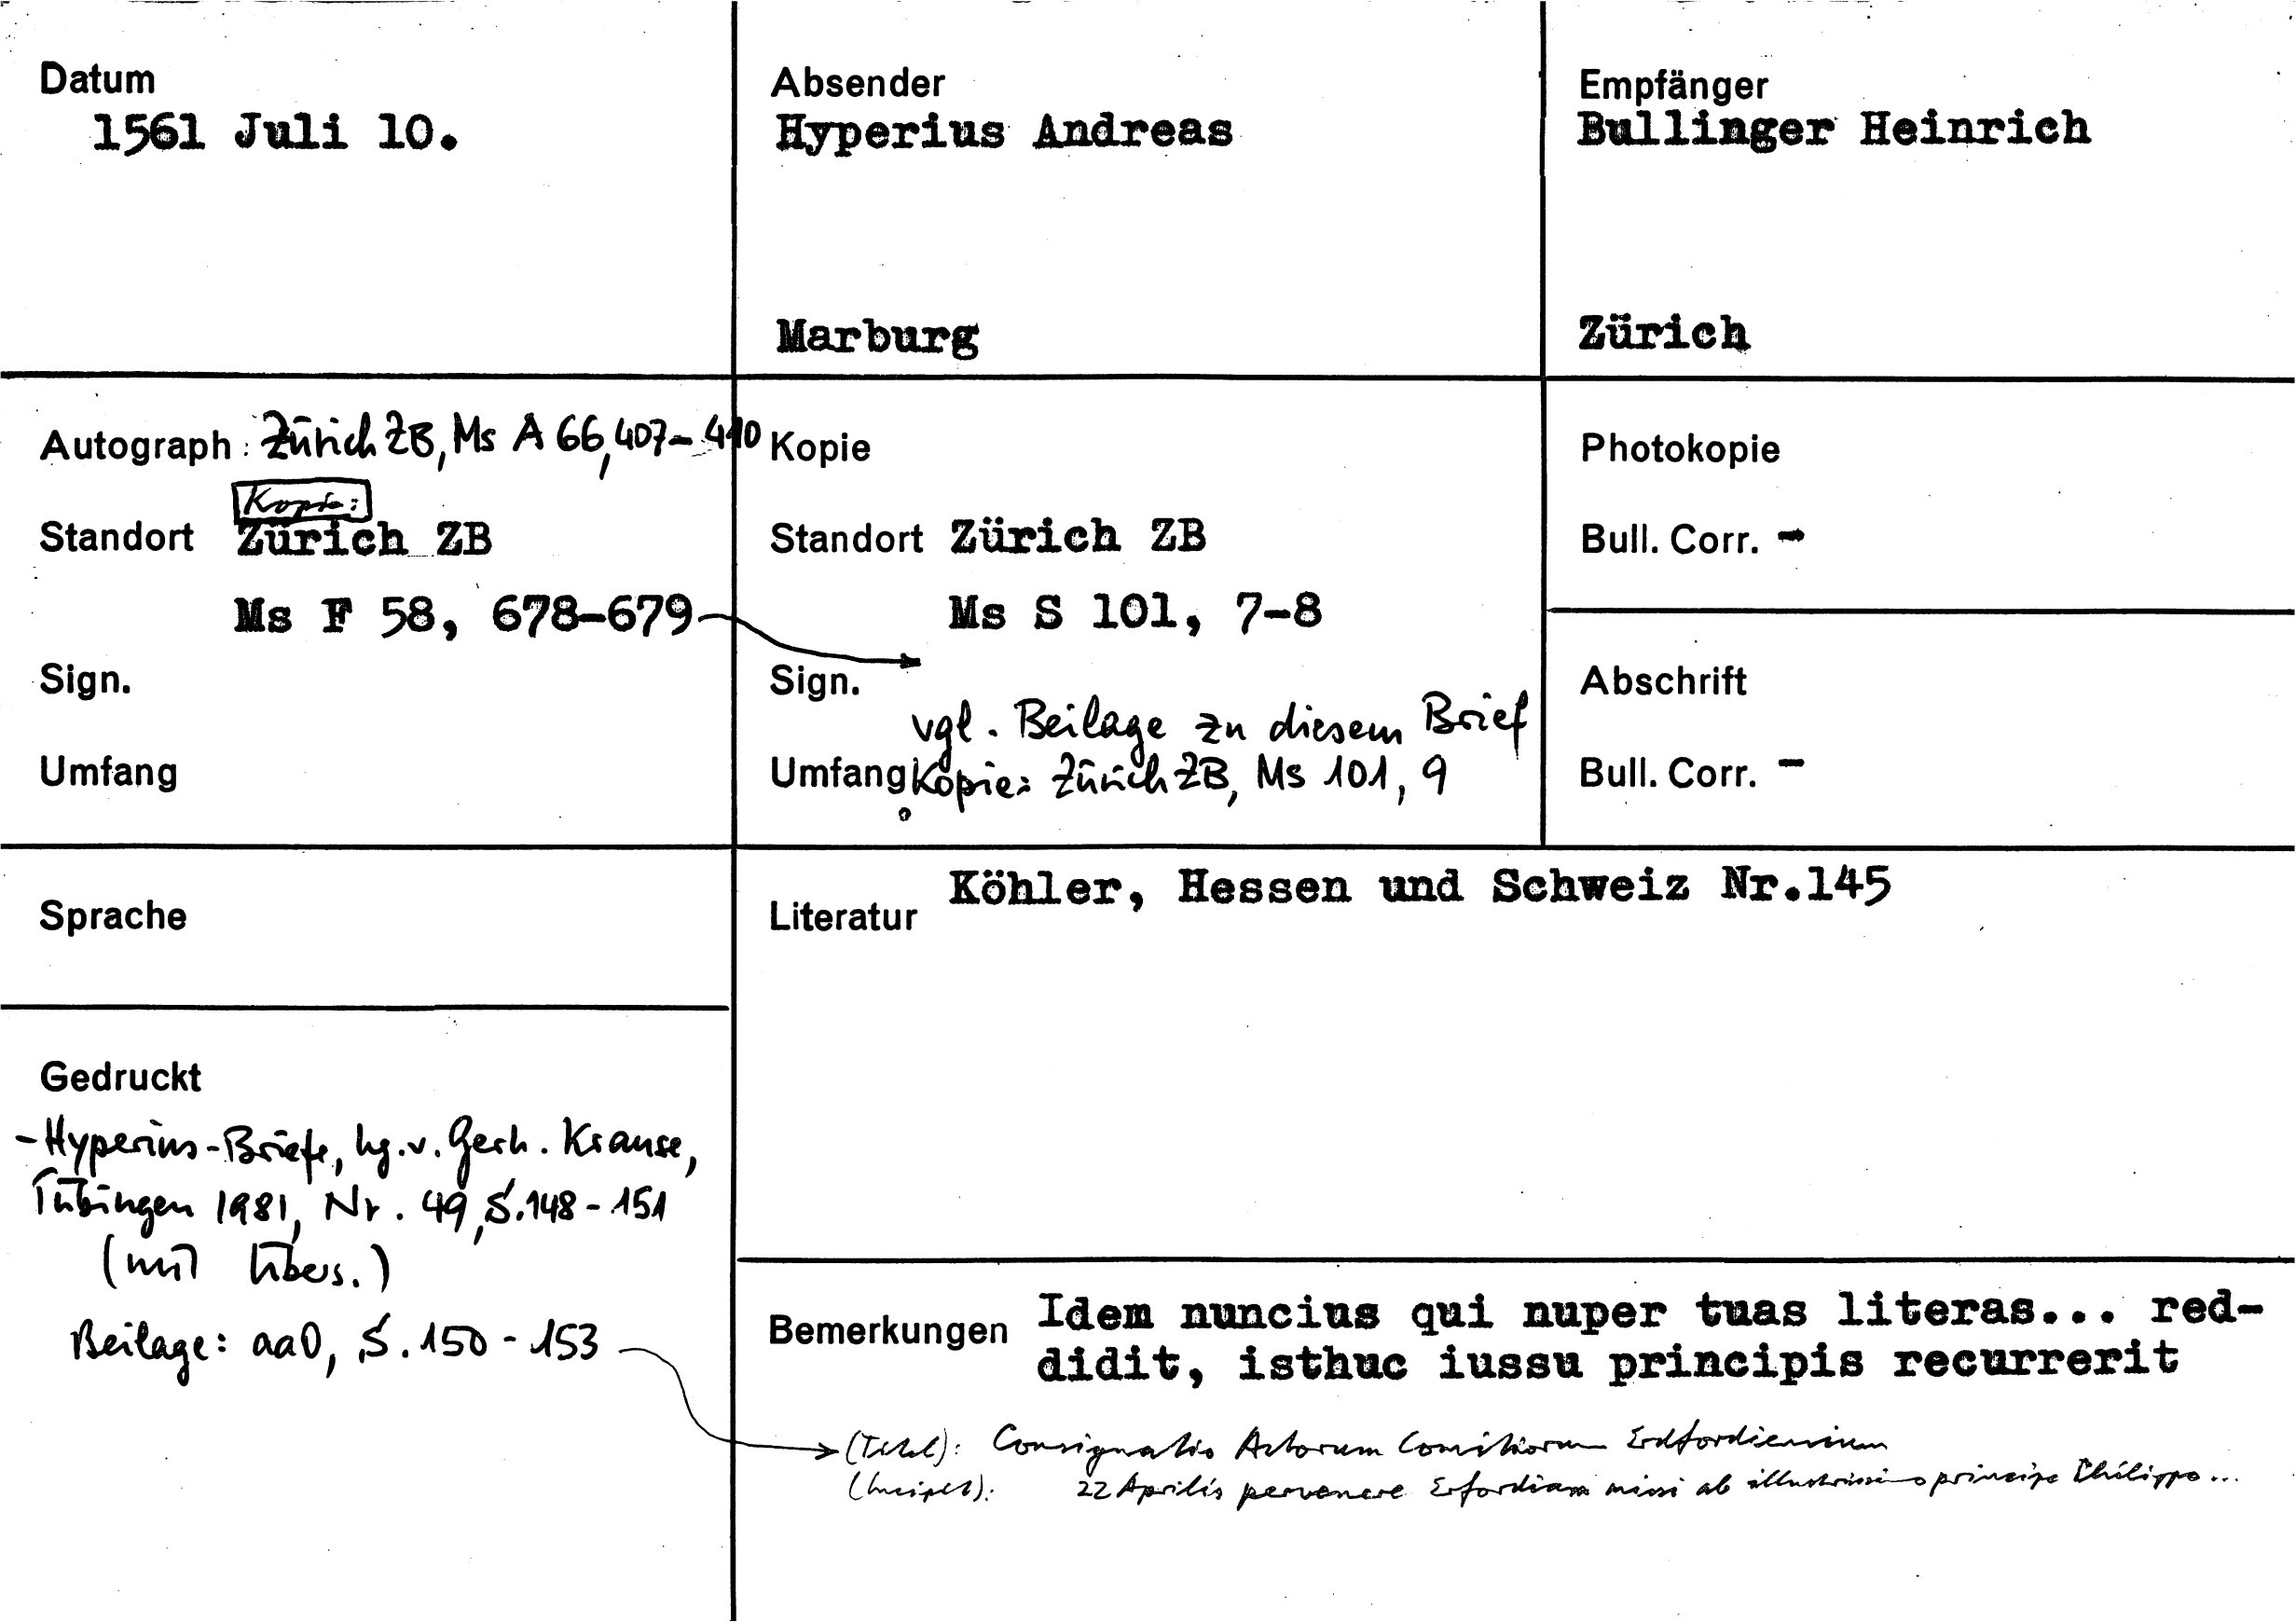 Datum
1561 Juli 10.
Absender
Hyperius Andreas
Marburg
Empfänger
Bullinger Heinrich
Zürich
Autograph: Zürich ZB, Ms A 66, 407-410
Kopie:
Standort Zürich ZB
Ms F 58, 678-679
Sign.
Umfang
Kopie
Standort Zürich ZB
Ms S 101, 7-8
Sign.
vgl. Beilage zu diesem Brief
Umfang Kopie: Zürich ZB, Ms 101, 9
Photokopie
Bull. Corr. -
Abschrift
Bull. Corr. -
Sprache
Literatur Köhler, Hessen und Schweiz Nr.145
Gedruckt
- Hyperius-Briefe, hg. v. Gerh. Krause,
Tübingen 1981, Nr. 49, S. 148-151
(mit Übers.)
Beilage: aaO, S. 150-153
Bemerkungen Idem nuncius qui nuper tuas literas... red-
didit, isthuc iussu principis recurrerit
(Titel): Consignatio Actorum Comitiorum Erdfordiensium
(Incipit): 22 Aprilis pervenere Erfordiam missi ab illustrissimo principe Philippo...